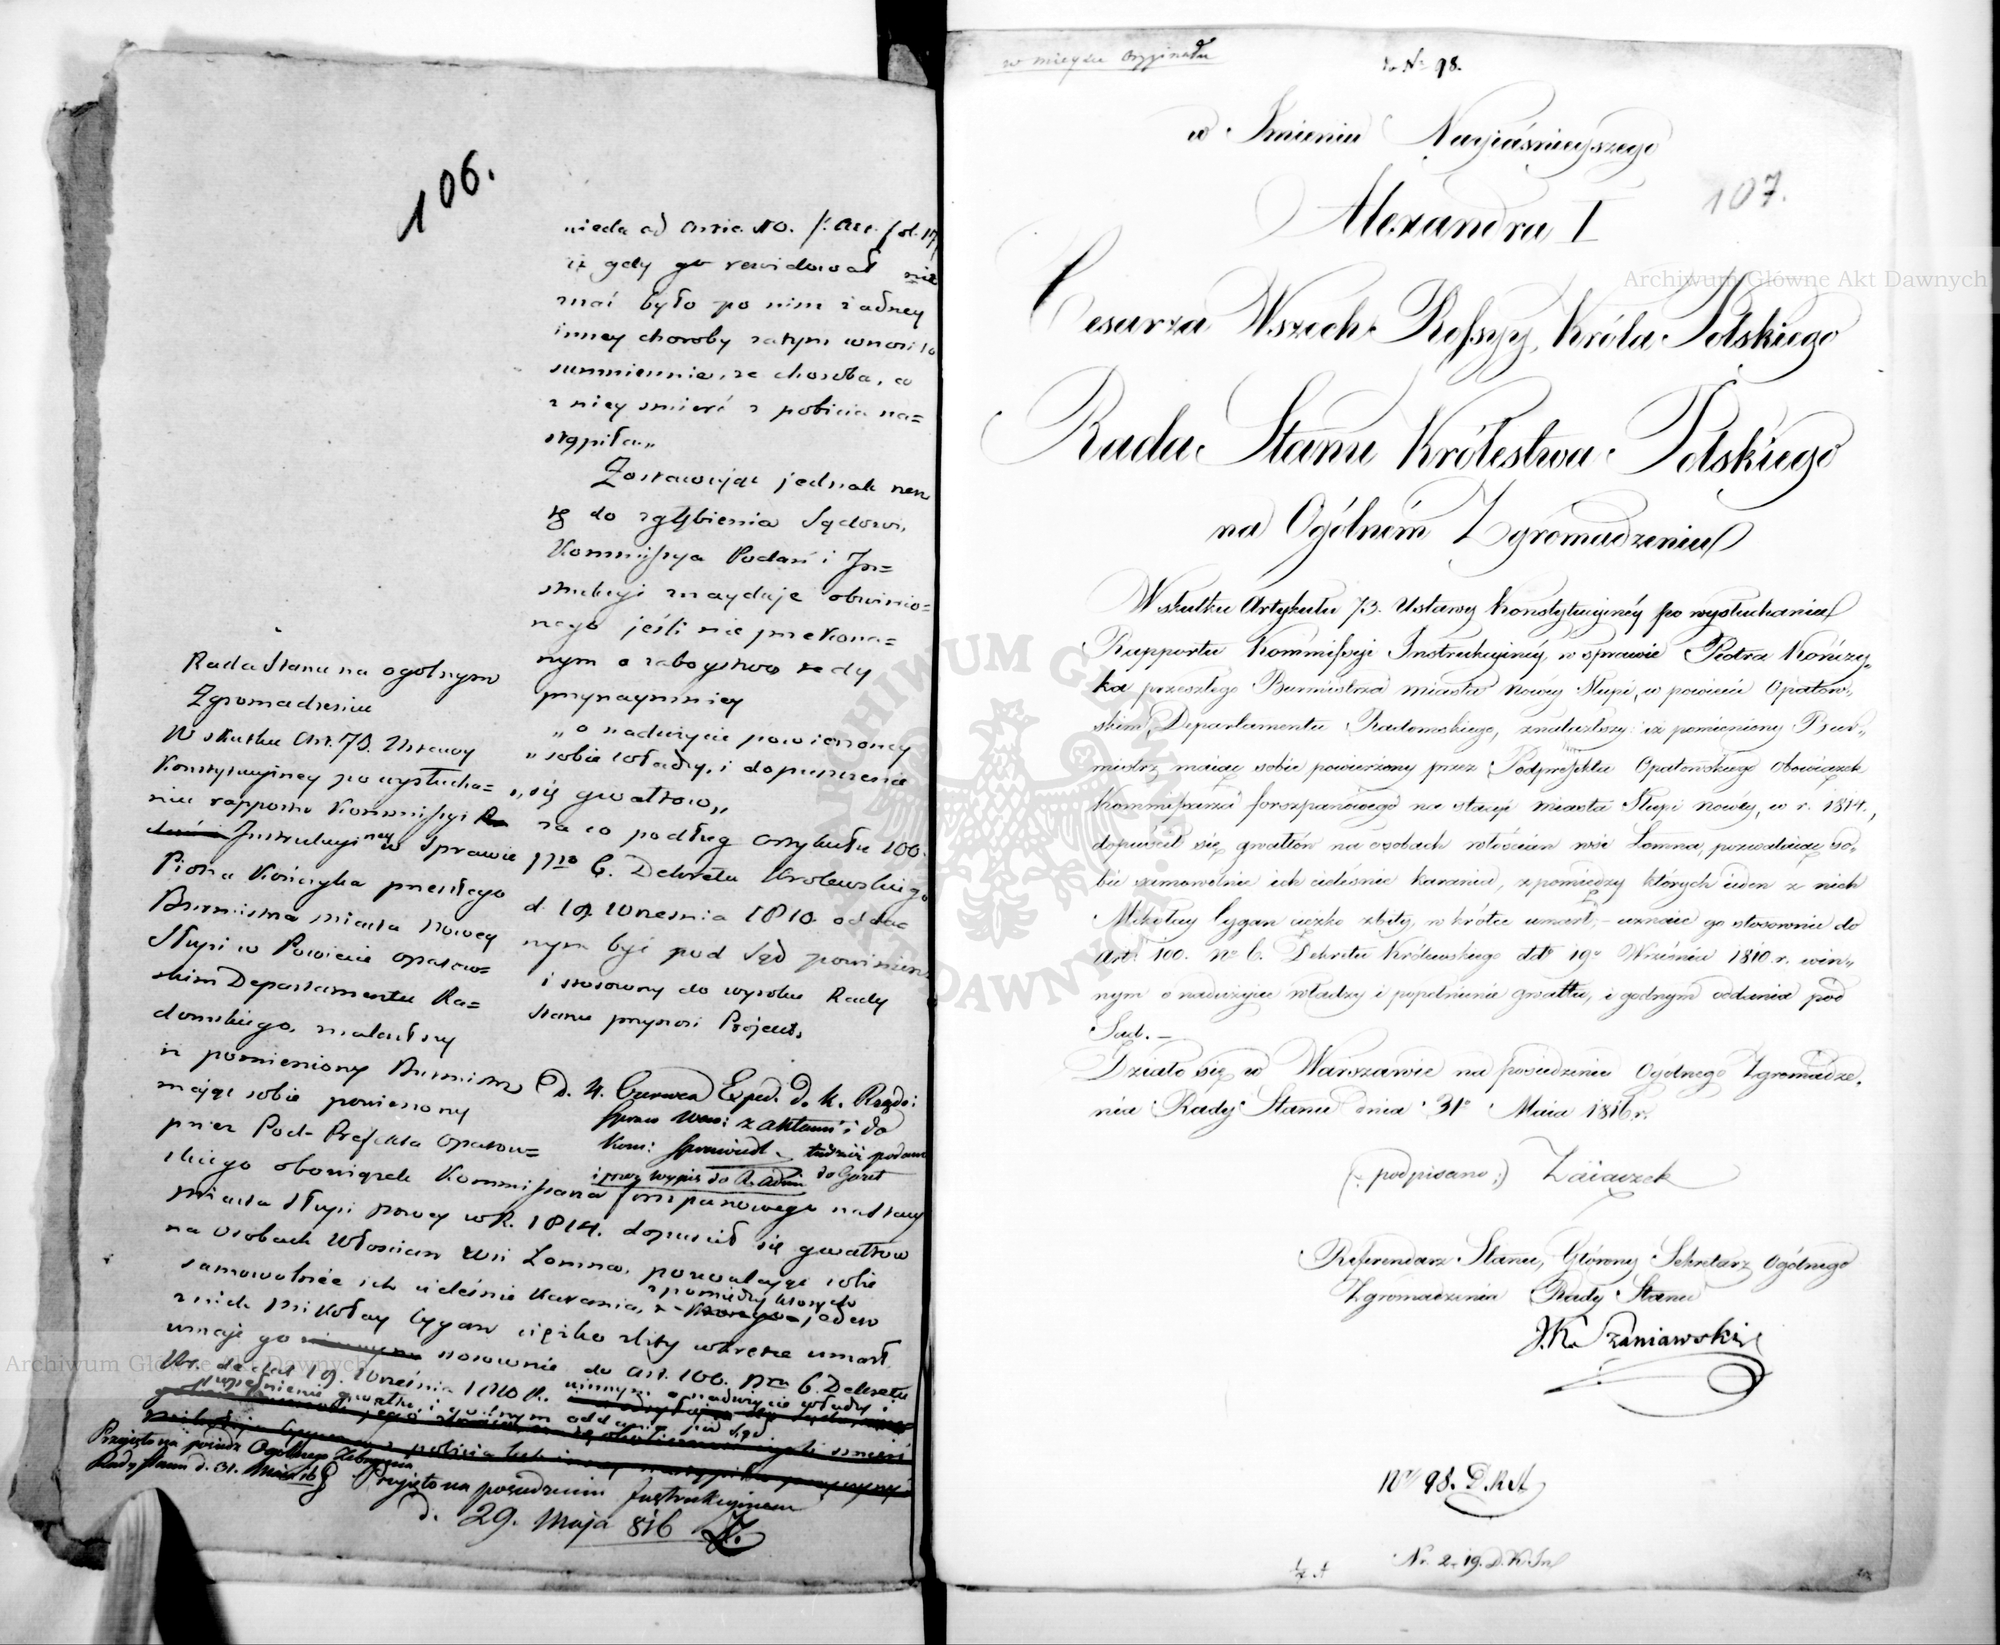 106.
nieda od
iż gdy go rewidował nie
mai było po nim żadney
inney choroby zatym wnosi to
summiennie, że choroba, co
z niey smierć z pobicia na=
stąpiła„
Zostawując jednak rzecz
tę do zgłębienia Sądowi,
Kommissya Podań i In=
strukcyi znayduje obwinio=
nego jeśli nie przekona=
nym o zaboystwo tedy
przynaymniey
„ o nadużycie powierzoney
„ sobie władzy, i dopuszczenie
„ się gwałtow„
za co podług artykułu 100.
nro 6. Dekretu Krolewskiego
d. 19. Września 1810. oddanym
nym być pod Sąd powinien
i stosowny do wyroku Rady
Stanu przynosi Projekt.
Rada Stanu na ogolnym
Zgromadzeniu
W skutku Art. 73. Ustawy
Konstytucyiney po wysłucha=
niu rapportu Kommissyi
Instrukcyiney w Sprawie
Piotra Kończyka przeszłego
Burmistrza miasta Nowey
Słupi w Powiecie Opatow=
skim Departamentu Ra=
domskiego, znalazłszy
iż pomieniony Burmistrz
mając sobie powierzony
przez Pod-Prefekta Opatow=
skiego obowiązek Kommissarza forszpanowego na stacyi
miasta Słupi Nowey w R. 1814. dopuścił się gwałtow
na osobach Włościan Wsi Lomna, pozwalając sobie
samowolnie ich cieleśnie karania, z pomiędzy ktorych jeden
z nich Mikołay Cygan ciężko zbity wkrotce umarł.
uznaje go stosownie do art. 100. nro 6. Dekretu
Kr. de dat 19. Września 1810 R. winnym o nadużycie władzy i
popełnienie gwałtu, i godnym oddania pod Sąd
D. 4. Czerwca Exped. do K. Rządo:
Spraw Wew: z aktami i do
Kom: Sprawiedl.
i przez wypis do
Przyięto na posiedz Ogolnego Zebrania
Rady Stanu d. 31. Maia 816
Przyięto na posiedzeniu Instrukcyinem
d. 29. Maja 816
w mieyscu oryginału
do Nr 98.
107.
w Imieniu Nayiaśnieyszego
Alexandra I
Cesarza Wszech Rossyy, Króla Polskiego
Rada Stanu Królestwa Polskiego
na Ogólném Zgromadzeniu
W skutku Artykułu 73. Ustawy Konstytucyiney po wysłuchaniu
Rapportu Kommissyi Instrukcyiney, w sprawie Piotra Kończy-
ka przeszłego Burmistrza miasta Nowey Słupi, w powiecie Opatow-
skim, Departamentu Radomskiego, znalazłszy: iż pomieniony Bur-
mistrz maiąc sobie powierzony przez Podprefekta Opatowskiego obowiązek
Kommissarza forszpanowego na stacyi miasta Słupi Nowey, w r. 1814,
dopuścił się gwałtów na osobach włościan wsi Lomna, pozwalaiąc so-
bie samowolnie ich cieleśnie karania, z pomiędzy których ieden z nich
Mikołay Cygan ciężko zbity, w krótce umarł, - uznaie go stosownie do
Art. 100. No 6. Dekretu Królewskiego ddto 19go Września 1810. r. win-
nym o nadużycie władzy i popełnienie gwałtu, i godnym oddania pod
Sąd. —
Działo się w Warszawie na posiedzeniu Ogólnego Zgromadze-
nia Rady Stanu dnia 31o Maia 1816 r.
(: podpisano :) Zaiączek
Referendarz Stanu, Główny Sekretarz Ogólnego
Zgromadzenia Rady Stanu
J. K. Szaniawski
Nro 98. D. R. A
Nr. 219. D. K. In
Archiwum Główne Akt Dawnych
Archiwum Główne Akt Dawnych
ARCHIWUM GŁÓWNE AKT DAWNYCH